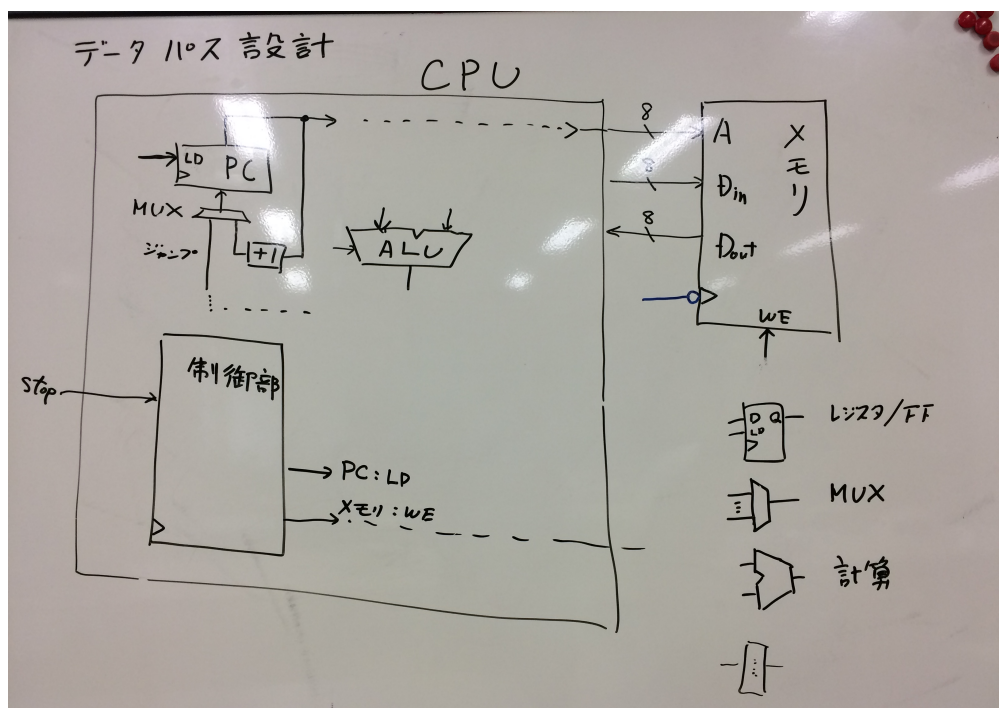 データパス設計
CPU
LD PC
MUX
ジャンプ
+1
ALU
8
A
8
Din
8
Dout
メモリ
WE
stop
制御部
PC:LD
メモリ:WE
D Q
LD
レジスタ/FF
MUX
計算